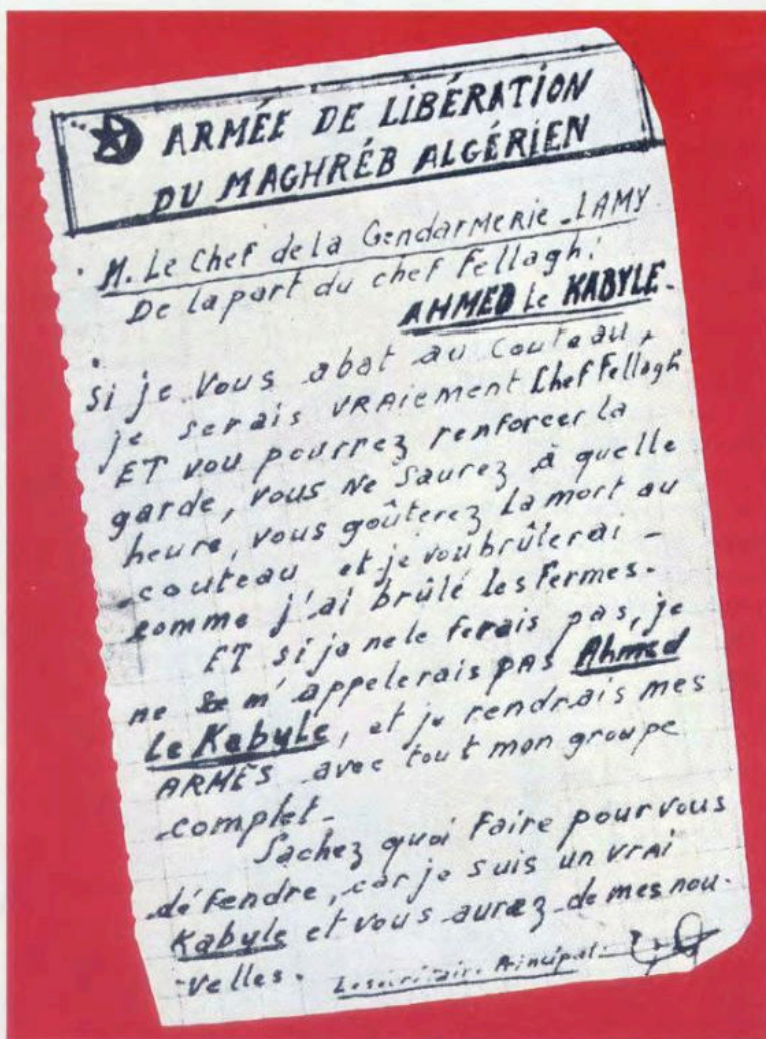 ARMÉE DE LIBÉRATION
DU MAGHRÉB ALGÉRIEN
M. Le Chef de la Gendarmerie - LAMY
De la part du chef Fellagh:
AHMED le KABYLE.
Si je vous abat au couteau,
je serais VRAiement Chef Fellagh
ET vou pourrez renforcer la
garde, vous ne saurez à quelle
heure, vous goûterez la mort au
couteau et je vou brûlerai -
comme j'ai brûlé les Fermes.
ET si je ne le ferais pas, je
ne m'appelerais pas Ahmed
le Kabyle, et je rendrais mes
ARMES avec tout mon groupe
complet.
Sachez quoi Faire pour vous
défendre, car je suis un vrai
Kabyle et vous aurez de mes nou-
velles.
Le secrétaire Principal: